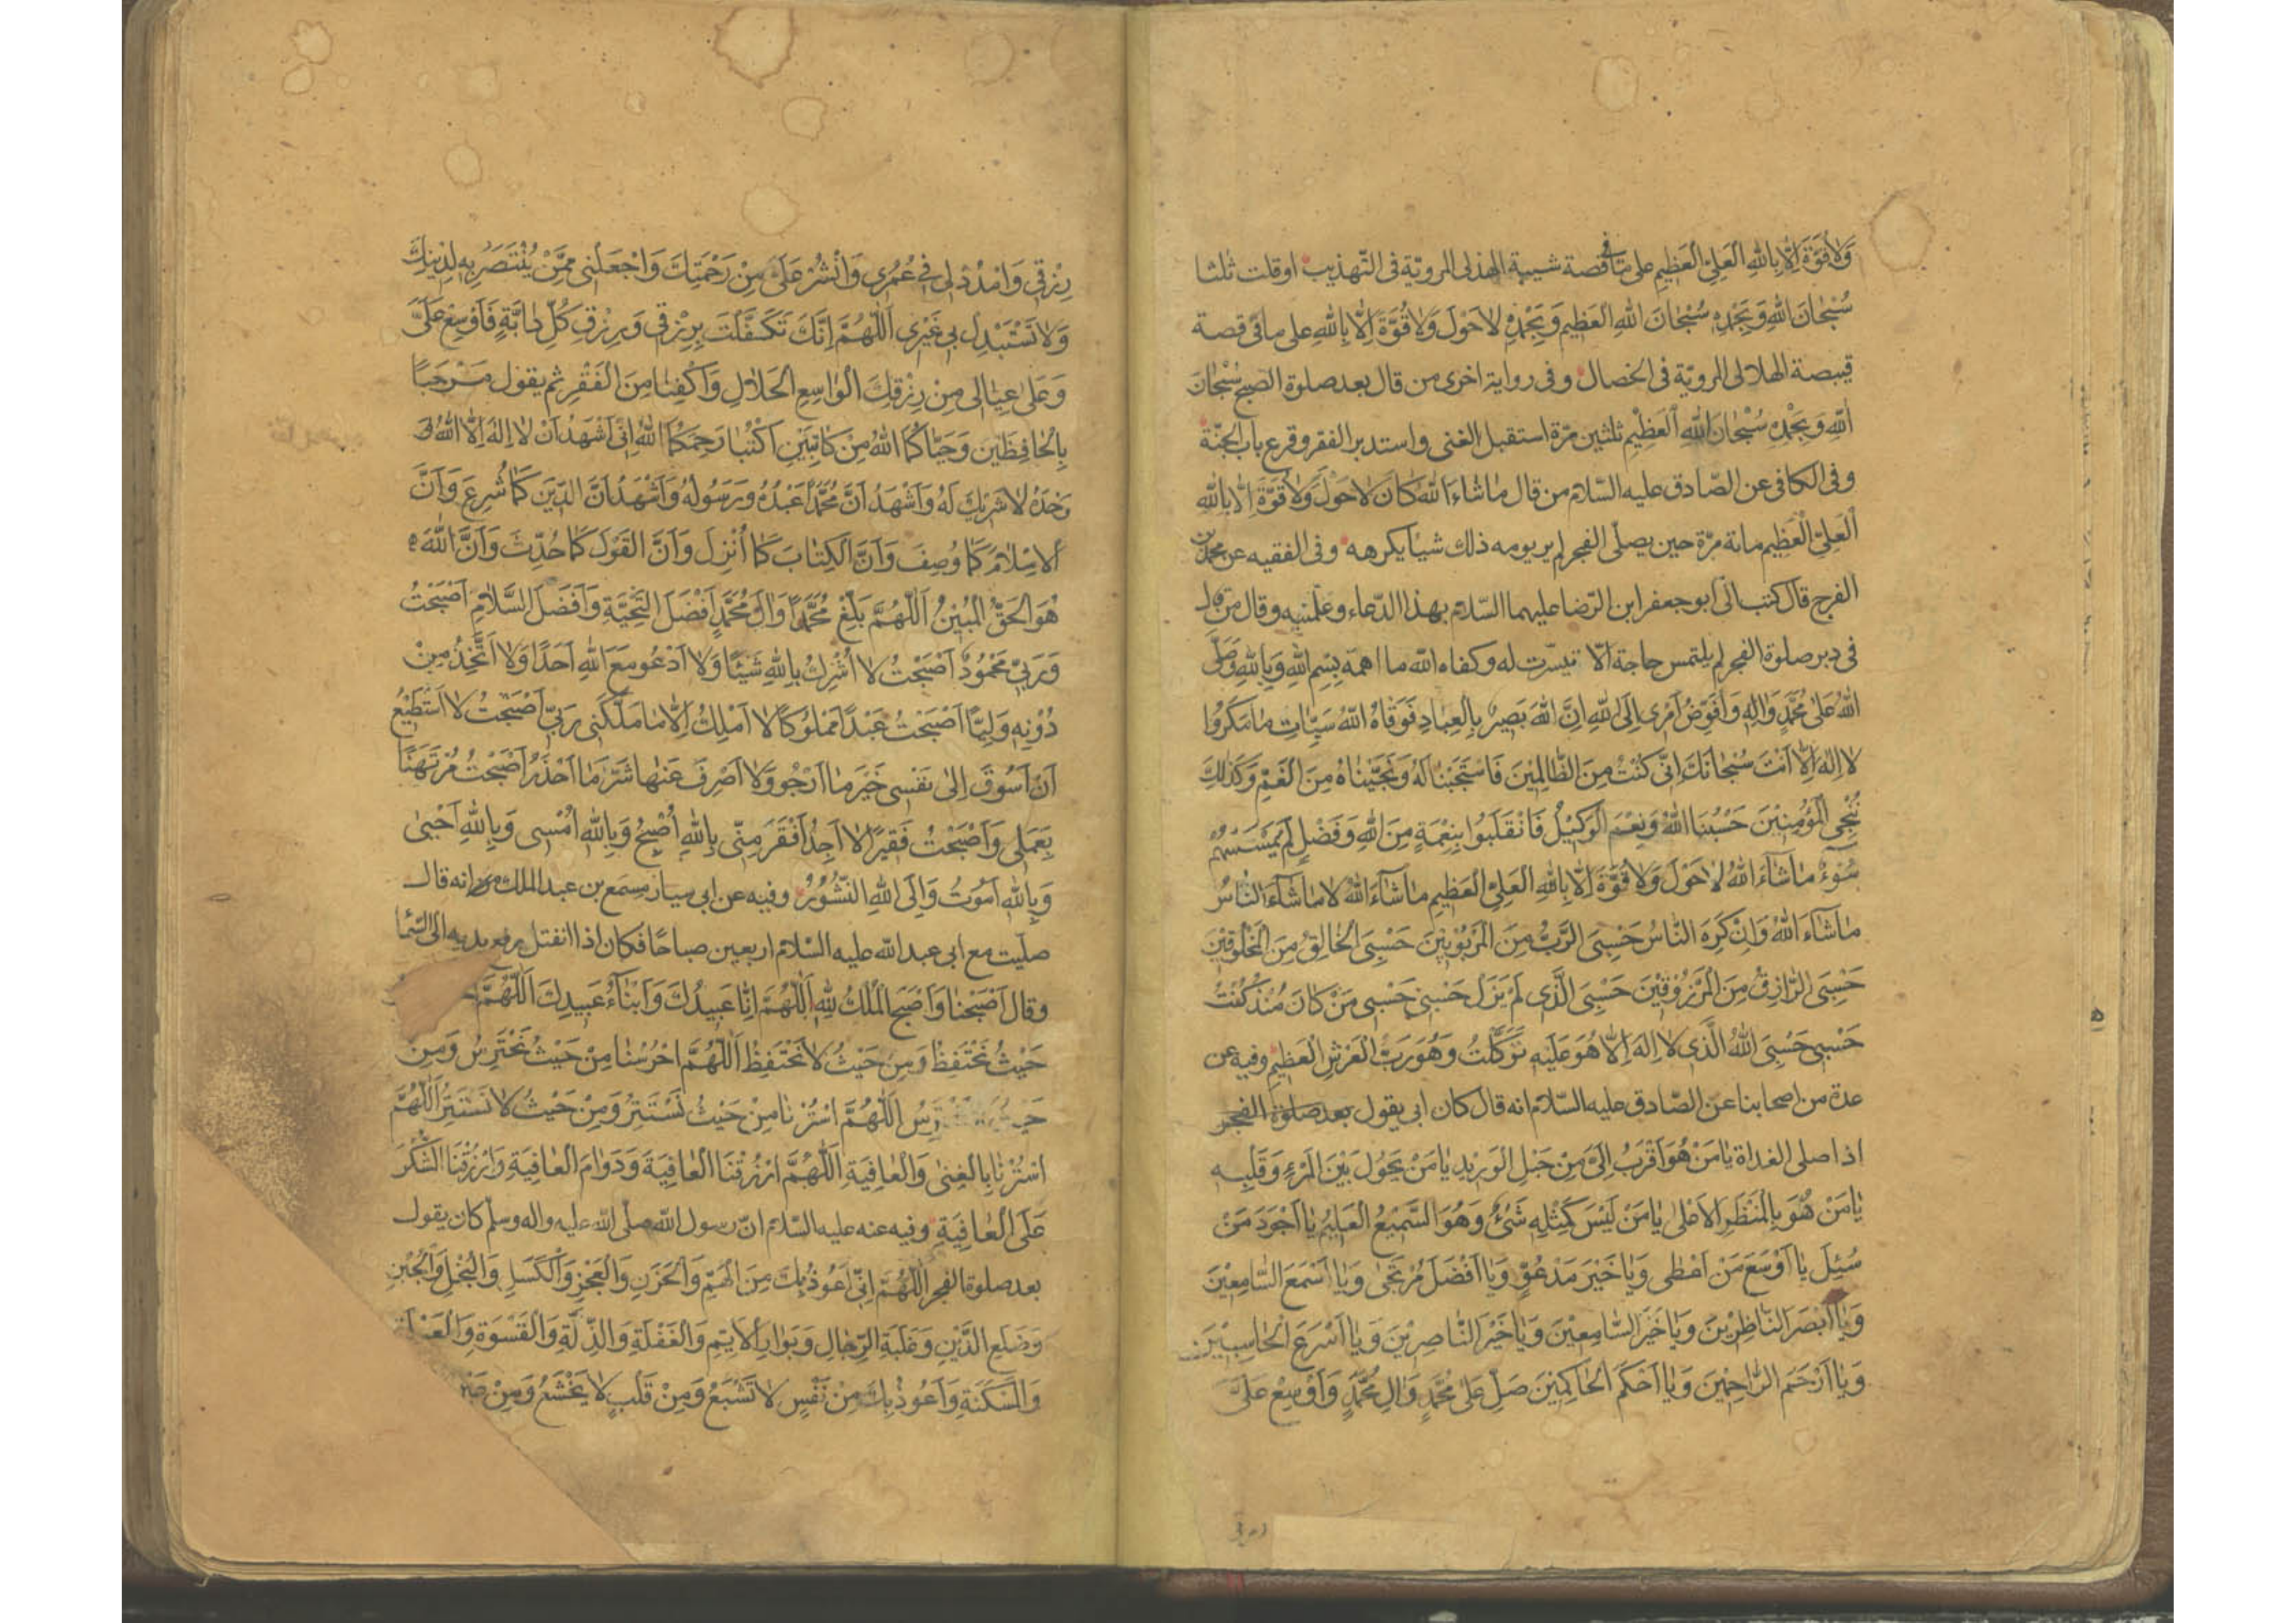 وَلاٰ قُوَّةَ اِلّاٰ بِاللهِ الْعَلِيِّ الْعَظيمِ على ما فى قصة شيبة الهذلى المروية فى التهذيب او قلت ثلثا
سُبْحٰانَ اللهِ وَبِحَمْدِهِ سُبْحٰانَ اللهِ الْعَظيمِ وَبِحَمْدِهِ لاٰحَوْلَ وَلاٰ قُوَّةَ اِلّاٰ بِاللهِ على ما فى قصة
قبيصة الهلالى المروية فى الخصال وفى رواية اخرى من قال بعد صلوة الصبح سُبْحٰانَ
اللهِ وَبِحَمْدِهِ سُبْحٰانَ اللهِ الْعَظيْمِ ثلثين مرّة استقبل الغنى واستدبر الفقر وقرع باب الجنّة
وفى الكافى عن الصّادق عليه السّلام من قال مٰا شٰاءَ اللهُ كٰانَ لاٰحَوْلَ وَلاٰ قُوَّةَ اِلّاٰ بِاللهِ
الْعَلِيِّ الْعَظيمِ مائة مرّة حين يصلّى الفجر لم ير يومه ذلك شيأ يكرهه وفى الفقيه عن محمد بن
الفرج قال كتب الىّ ابو جعفر ابن الرّضا عليهما السّلام بهذا الدّعاء وعلّمنيه وقال من قال
فى دبر صلوة الفجر لم يلتمس حاجة الّا تيسّرت له وكفاه الله ما اهمه بِسْمِ اللهِ وَبِاللهِ وَصَلَّى
اللهُ عَلىٰ مُحَمَّدٍ وَاٰلِهِ وَاُفَوِّضُ اَمْرى اِلَى اللهِ اِنَّ اللهَ بَصيرٌ بِالْعِبٰادِ فَوَقٰاهُ اللهُ سَيِّئٰاتِ مٰا مَكَرُوا
لاٰ اِلٰهَ اِلّاٰ اَنْتَ سُبْحٰانَكَ اِنّى كُنْتُ مِنَ الظّٰالِمِيْنَ فَاسْتَجَبْنٰا لَهُ وَنَجَّيْنٰاهُ مِنَ الْغَمِّ وَكَذٰلِكَ
نُنْجِى الْمُؤْمِنيْنَ حَسْبُنَا اللهُ وَنِعْمَ الْوَكيْلُ فَانْقَلَبُوا بِنِعْمَةٍ مِنَ اللهِ وَفَضْلٍ لَمْ يَمْسَسْهُمْ
سُوْءٌ مٰا شٰاءَ اللهُ لاٰحَوْلَ وَلاٰ قُوَّةَ اِلّاٰ بِاللهِ الْعَلِيِّ الْعَظيمِ مٰا شٰاءَ اللهُ لاٰ مٰا شٰاءَ النّٰاسُ
مٰا شٰاءَ اللهُ وَاِنْ كَرِهَ النّٰاسُ حَسْبِىَ الرَّبُّ مِنَ الْمَرْبُوْبِيْنَ حَسْبِىَ الْخٰالِقُ مِنَ الْمَخْلُوْقيْنَ
حَسْبِىَ الرّٰازِقُ مِنَ الْمَرْزُوْقيْنَ حَسْبِىَ الَّذى لَمْ يَزَلْ حَسْبى حَسْبى مَنْ كٰانَ مُنْذُ كُنْتُ
حَسْبى حَسْبِىَ اللهُ الَّذى لاٰ اِلٰهَ اِلّاٰ هُوَ عَلَيْهِ تَوَكَّلْتُ وَهُوَ رَبُّ الْعَرْشِ الْعَظيمِ وفيه عن
عدة من اصحابنا عن الصّادق عليه السّلام انه قال كان ابى يقول بعد صلوة الفجر
اذا صلى الغداة يٰا مَنْ هُوَ اَقْرَبُ اِلَىَّ مِنْ حَبْلِ الْوَريدِ يٰا مَنْ يَحُوْلُ بَيْنَ الْمَرْءِ وَقَلْبِهِ
يٰا مَنْ هُوَ بِالْمَنْظَرِ الْاَعْلىٰ يٰا مَنْ لَيْسَ كَمِثْلِهِ شَىْءٌ وَهُوَ السَّميعُ الْعَليمُ يٰا اَجْوَدَ مَنْ
سُئِلَ يٰا اَوْسَعَ مَنْ اَعْطى وَيٰا خَيْرَ مَدْعُوٍّ وَيٰا اَفْضَلَ مُرْتَجىٰ وَيٰا اَسْمَعَ السّٰامِعيْنَ
وَيٰا اَبْصَرَ النّٰاظِرِيْنَ وَيٰا خَيْرَ السّٰامِعيْنَ وَيٰا خَيْرَ النّٰاصِرِيْنَ وَيٰا اَسْرَعَ الْحٰاسِبيْنَ
وَيٰا اَرْحَمَ الرّٰاحِميْنَ وَيٰا اَحْكَمَ الْحٰاكِميْنَ صَلِّ عَلىٰ مُحَمَّدٍ وَاٰلِ مُحَمَّدٍ وَاَوْسِعْ عَلَىَّ
رِزْقى وَامْدُدْ لى فى عُمْرى وَانْشُرْ عَلَىَّ مِنْ رَحْمَتِكَ وَاجْعَلْنى مِمَّنْ يُنْتَصَرُ بِهِ لِدْينِكَ
وَلاٰ تَسْتَبْدِلْ بى غَيْرى اَللّٰهُمَّ اِنَّكَ تَكَفَّلْتَ بِرِزْقى وَبِرِزْقِ كُلِّ دٰابَّةٍ فَاَوْسِعْ عَلَىَّ
وَعَلىٰ عِيٰالى مِنْ رِزْقِكَ الْوٰاسِعِ الْحَلاٰلِ وَاكْفِنٰا مِنَ الْفَقْرِ ثم يقول مَرْحَبًا
بِالْحٰافِظَيْنِ وَحَيّٰاكُمَا اللهُ مِنْ كٰاتِبَيْنِ اُكْتُبٰا رَحِمَكُمَا اللهُ اِنّى اَشْهَدُ اَنْ لاٰ اِلٰهَ اِلَّا اللهُ
وَحْدَهُ لاٰ شَريكَ لَهُ وَاَشْهَدُ اَنَّ مُحَمَّدًا عَبْدُهُ وَرَسُولُهُ وَاَشْهَدُ اَنَّ الدّيَنَ كَمٰا شُرِعَ وَاَنَّ
الْاِسْلاٰمَ كَمٰا وُصِفَ وَاَنَّ الْكِتٰابَ كَمٰا اُنْزِلَ وَاَنَّ الْقَوْلَ كَمٰا حُدِّثَ وَاَنَّ اللهَ
هُوَ الْحَقُّ الْمُبيْنُ اَللّٰهُمَّ بَلِّغْ مُحَمَّدًا وَاٰلَ مُحَمَّدٍ اَفْضَلَ التَّحِيَّةِ وَاَفْضَلَ السَّلاٰمِ اَصْبَحْتُ
وَرَبّى مَحْمُودٌ اَصْبَحْتُ لاٰ اُشْرِكُ بِاللهِ شَيْئًا وَلاٰ اَدْعُو مَعَ اللهِ اَحَدًا وَلاٰ اَتَّخِذُ مِنْ
دُوْنِهِ وَلِيًّا اَصْبَحْتُ عَبْدًا مَمْلُوكًا لاٰ اَمْلِكُ اِلّاٰ مٰا مَلَّكَنى رَبّى اَصْبَحْتُ لاٰ اَسْتَطيْعُ
اَنْ اَسُوْقَ اِلىٰ نَفْسى خَيْرَ مٰا اَرْجُو وَلاٰ اَصْرِفَ عَنْهٰا شَرَّ مٰا اَحْذَرُ اَصْبَحْتُ مُرْتَهَنًا
بِعَمَلى وَاَصْبَحْتُ فَقيْرًا لاٰ اَجِدُ اَفْقَرَ مِنّى بِاللهِ اُصْبِحُ وَبِاللهِ اُمْسى وَبِاللهِ اَحْيىٰ
وَبِاللهِ اَمُوْتُ وَاِلَى اللهِ النُّشُوْرُ وفيه عن ابى سيار مسمع بن عبد الملك انه قال
صلّيت مع ابى عبد الله عليه السّلام اربعين صباحًا فكان اذا انفتل رفع يديه الى السّمآ
وقال اَصْبَحْنٰا وَاَصْبَحَ الْمُلْكُ لِلّٰهِ اَللّٰهُمَّ اِنّٰا عَبيدُكَ وَاَبْنٰاءُ عَبيدِكَ اَللّٰهُمَّ
حَيْثُ نَحْتَفِظُ وَمِنْ حَيْثُ لاٰ نَحْتَفِظُ اَللّٰهُمَّ احْرُسْنٰا مِنْ حَيْثُ نَحْتَرِسُ وَمِنْ
اَللّٰهُمَّ اسْتُرْنٰا مِنْ حَيْثُ نَسْتَتِرُ وَمِنْ حَيْثُ لاٰ نَسْتَتِرُ اَللّٰهُمَّ
اسْتُرْنٰا بِالْغِنىٰ وَالْعٰافِيَةِ اَللّٰهُمَّ ارْزُقْنَا الْعٰافِيَةَ وَدَوٰامَ الْعٰافِيَةِ وَارْزُقْنَا الشُّكْرَ
عَلَى الْعٰافِيَةِ وفيه عنه عليه السّلام انّ رسول الله صلّى الله عليه واله وسلّم كان يقول
بعد صلوة الفجر اَللّٰهُمَّ اِنّى اَعُوْذُ بِكَ مِنَ الْهَمِّ وَالْحَزَنِ وَالْعَجْزِ وَالْكَسَلِ وَالْبُخْلِ وَالْجُبْنِ
وَضَلَعِ الدَّيْنِ وَغَلَبَةِ الرِّجٰالِ وَبَوٰارِ الْاَيِّمِ وَالْغَفْلَةِ وَالذِّلَّةِ وَالْقَسْوَةِ
وَالْمَسْكَنَةِ وَاَعُوْذُ بِكَ مِنْ نَفْسٍ لاٰ تَشْبَعُ وَمِنْ قَلْبٍ لاٰ يَخْشَعُ وَمِنْ